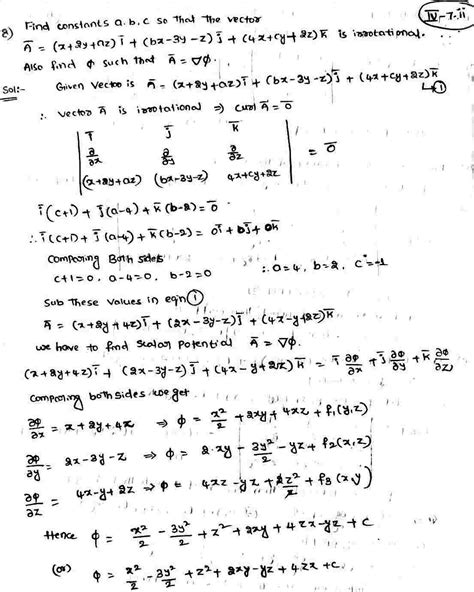 IV-7.ii
8) Find constants a, b, c so that the vector
Ā = (x+2y+az) ī + (bx-3y-z) j̄ + (4x+cy+2z) k̄ is irrotational.
Also find ϕ such that Ā = ∇ϕ.
Sol:- Given Vector is Ā = (x+2y+az) ī + (bx-3y-z) j̄ + (4x+cy+2z) k̄
→ ①
∴ vector Ā is irrotational ⇒ curl Ā = ō
| ī j̄ k̄ |
| ∂/∂x ∂/∂y ∂/∂z | = ō
| (x+2y+az) (bx-3y-z) 4x+cy+2z |
ī (c+1) + j̄ (a-4) + k̄ (b-2) = ō
∴ ī (c+1) + j̄ (a-4) + k̄ (b-2) = 0ī + 0j̄ + 0k̄
Comparing Both sides
c+1=0, a-4=0, b-2=0 ∴ a=4, b=2, c=-1
Sub These values in eqn ①
Ā = (x+2y+4z) ī + (2x-3y-z) j̄ + (4x-y+2z) k̄
we have to find Scalar Potential Ā = ∇ϕ.
(x+2y+4z) ī + (2x-3y-z) j̄ + (4x-y+2z) k̄ = ī ∂ϕ/∂x + j̄ ∂ϕ/∂y + k̄ ∂ϕ/∂z
Comparing both sides we get
∂ϕ/∂x = x+2y+4z ⇒ ϕ = x²/2 + 2xy + 4xz + f₁(y,z)
∂ϕ/∂y = 2x-3y-z ⇒ ϕ = 2xy - 3y²/2 - yz + f₂(x,z)
∂ϕ/∂z = 4x-y+2z ⇒ ϕ = 4xz - yz + 2z²/2 + f₃(x,y)
Hence ϕ = x²/2 - 3y²/2 + z² + 2xy + 4zx - yz + c
(or) ϕ = x²/2 - 3y²/2 + z² + 2xy - yz + 4zx + c.